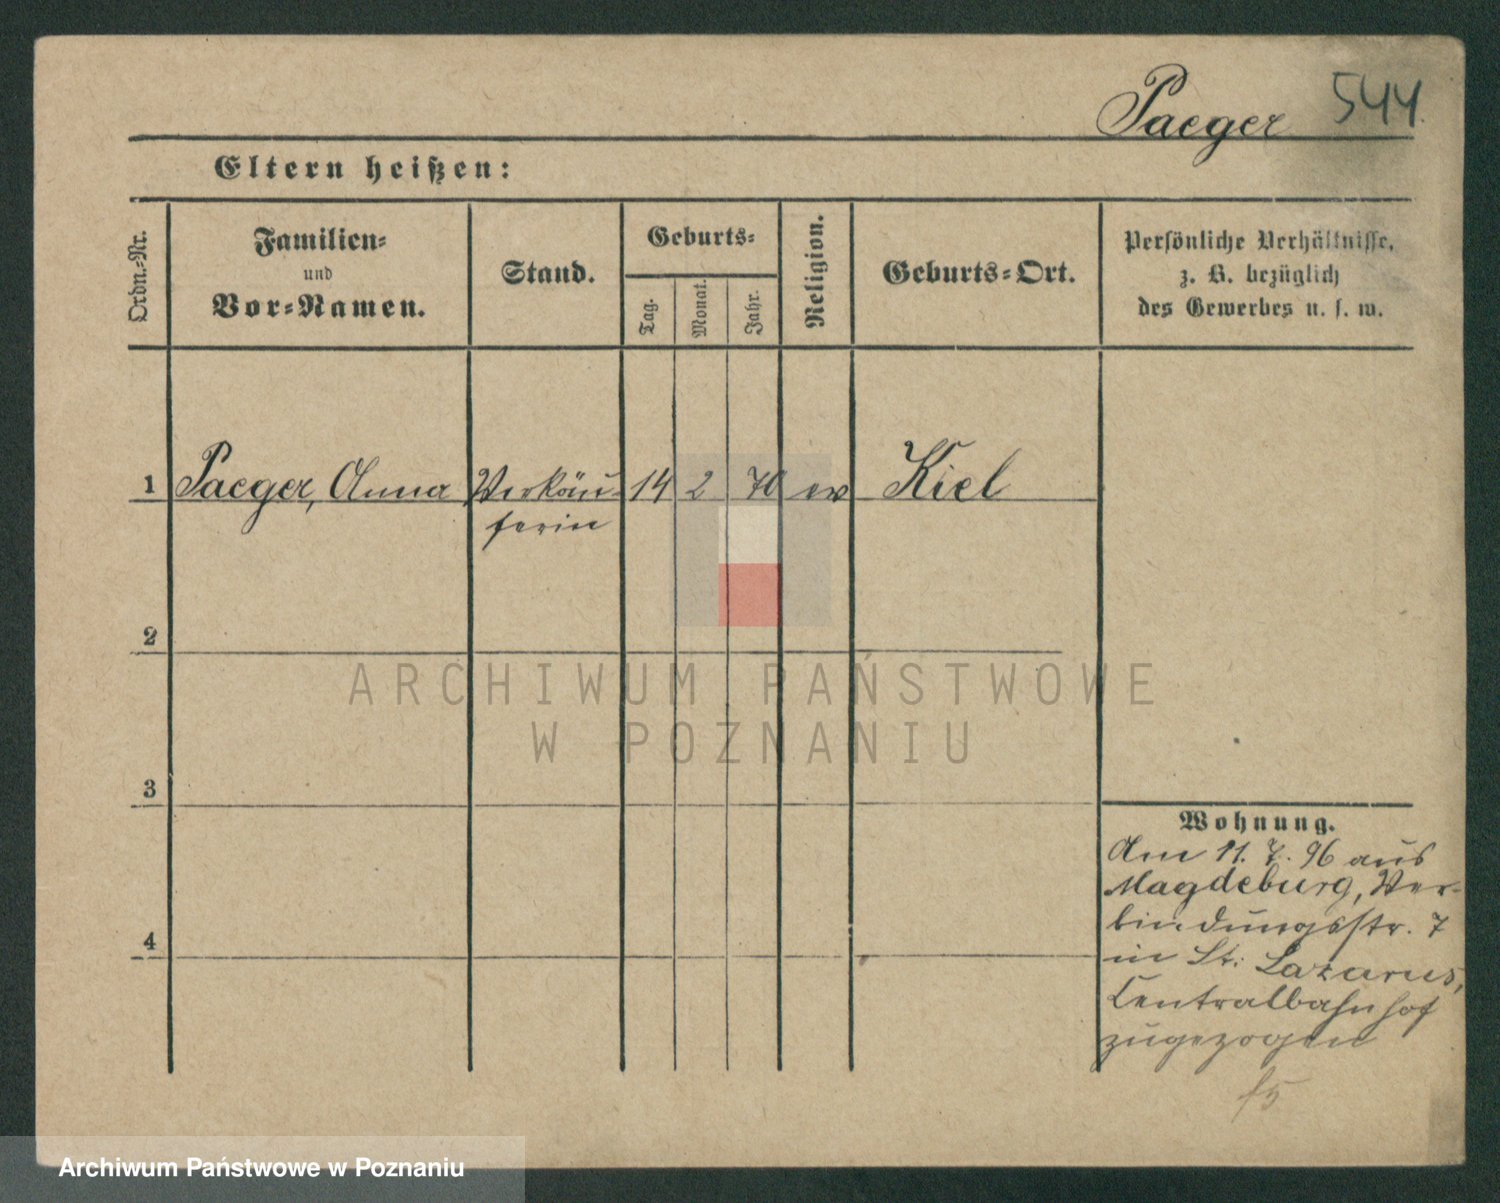 Paeger 544.
Eltern heißen:
Ordn.-Nr.
Familien-
und
Vor-Namen.
Stand.
Geburts-
Tag.
Monat.
Jahr.
Religion.
Geburts-Ort.
Persönliche Verhältnisse,
z. B. bezüglich
des Gewerbes u. s. w.
1 Paeger, Anna Verkäu- 14 2 70 ev Kiel
ferin
2
3
4
Wohnung.
Am 11. 7. 96 aus
Magdeburg, Ver-
bindungsstr. 7
in St. Lazarus,
Centralbahnhof
zugezogen
ARCHIWUM PAŃSTWOWE
W POZNANIU
Archiwum Państwowe w Poznaniu